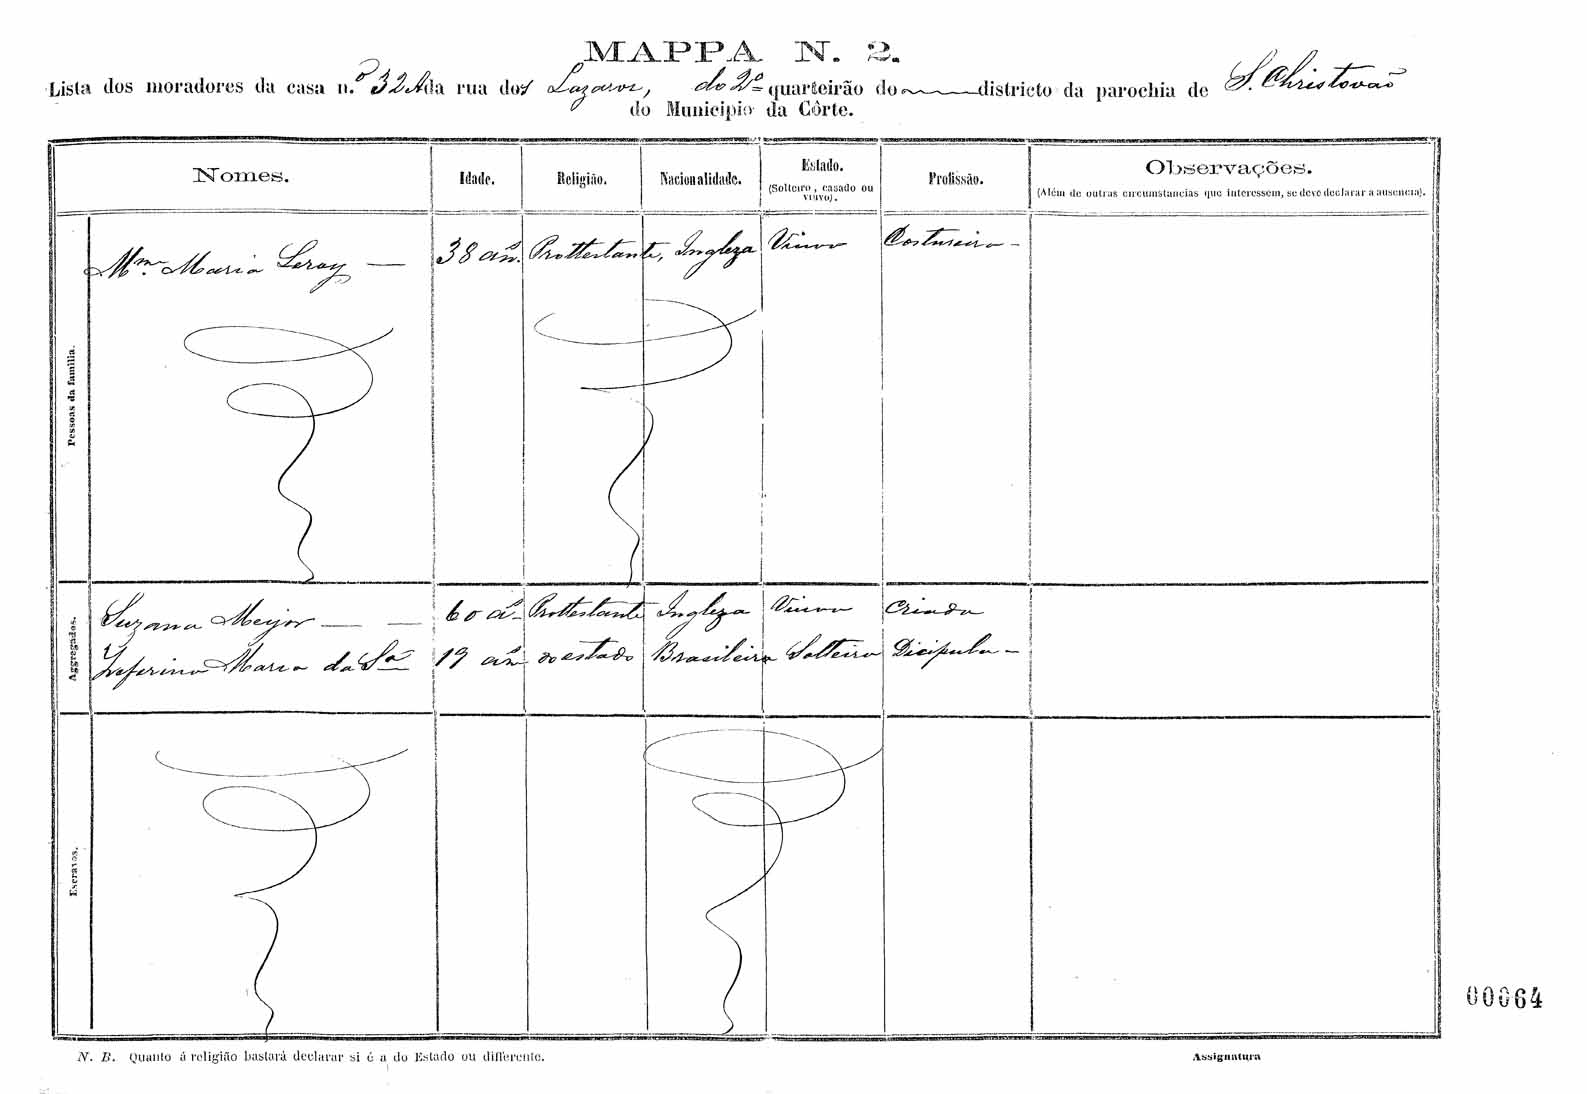 MAPPA N. 2.
Lista dos moradores da casa n.º 32 A da rua dos Lazaros, do 2º quarteirão do districto da parochia de S. Christovaõ
do Municipio da Côrte.
Nomes. Idade. Religião. Nacionalidade. Estado. (Solteiro, casado ou viuvo). Profissão. Observações. (Além de outras circumstancias que interessem, se deve declarar a ausencia).
Pessoas da familia.
Mme. Maria Leroy — 38 an. Prottestante, Ingleza Viuva Costureira —
Aggregados.
Suzana Meijor — — 60 an. Prottestante Ingleza Viuva Criada
Zeferina Maria da Sª 19 an do estado Brasileira Solteira Dicipula —
Escravos.
00064
N. B. Quanto á religião bastará declarar si é a do Estado ou differente.
Assignatura